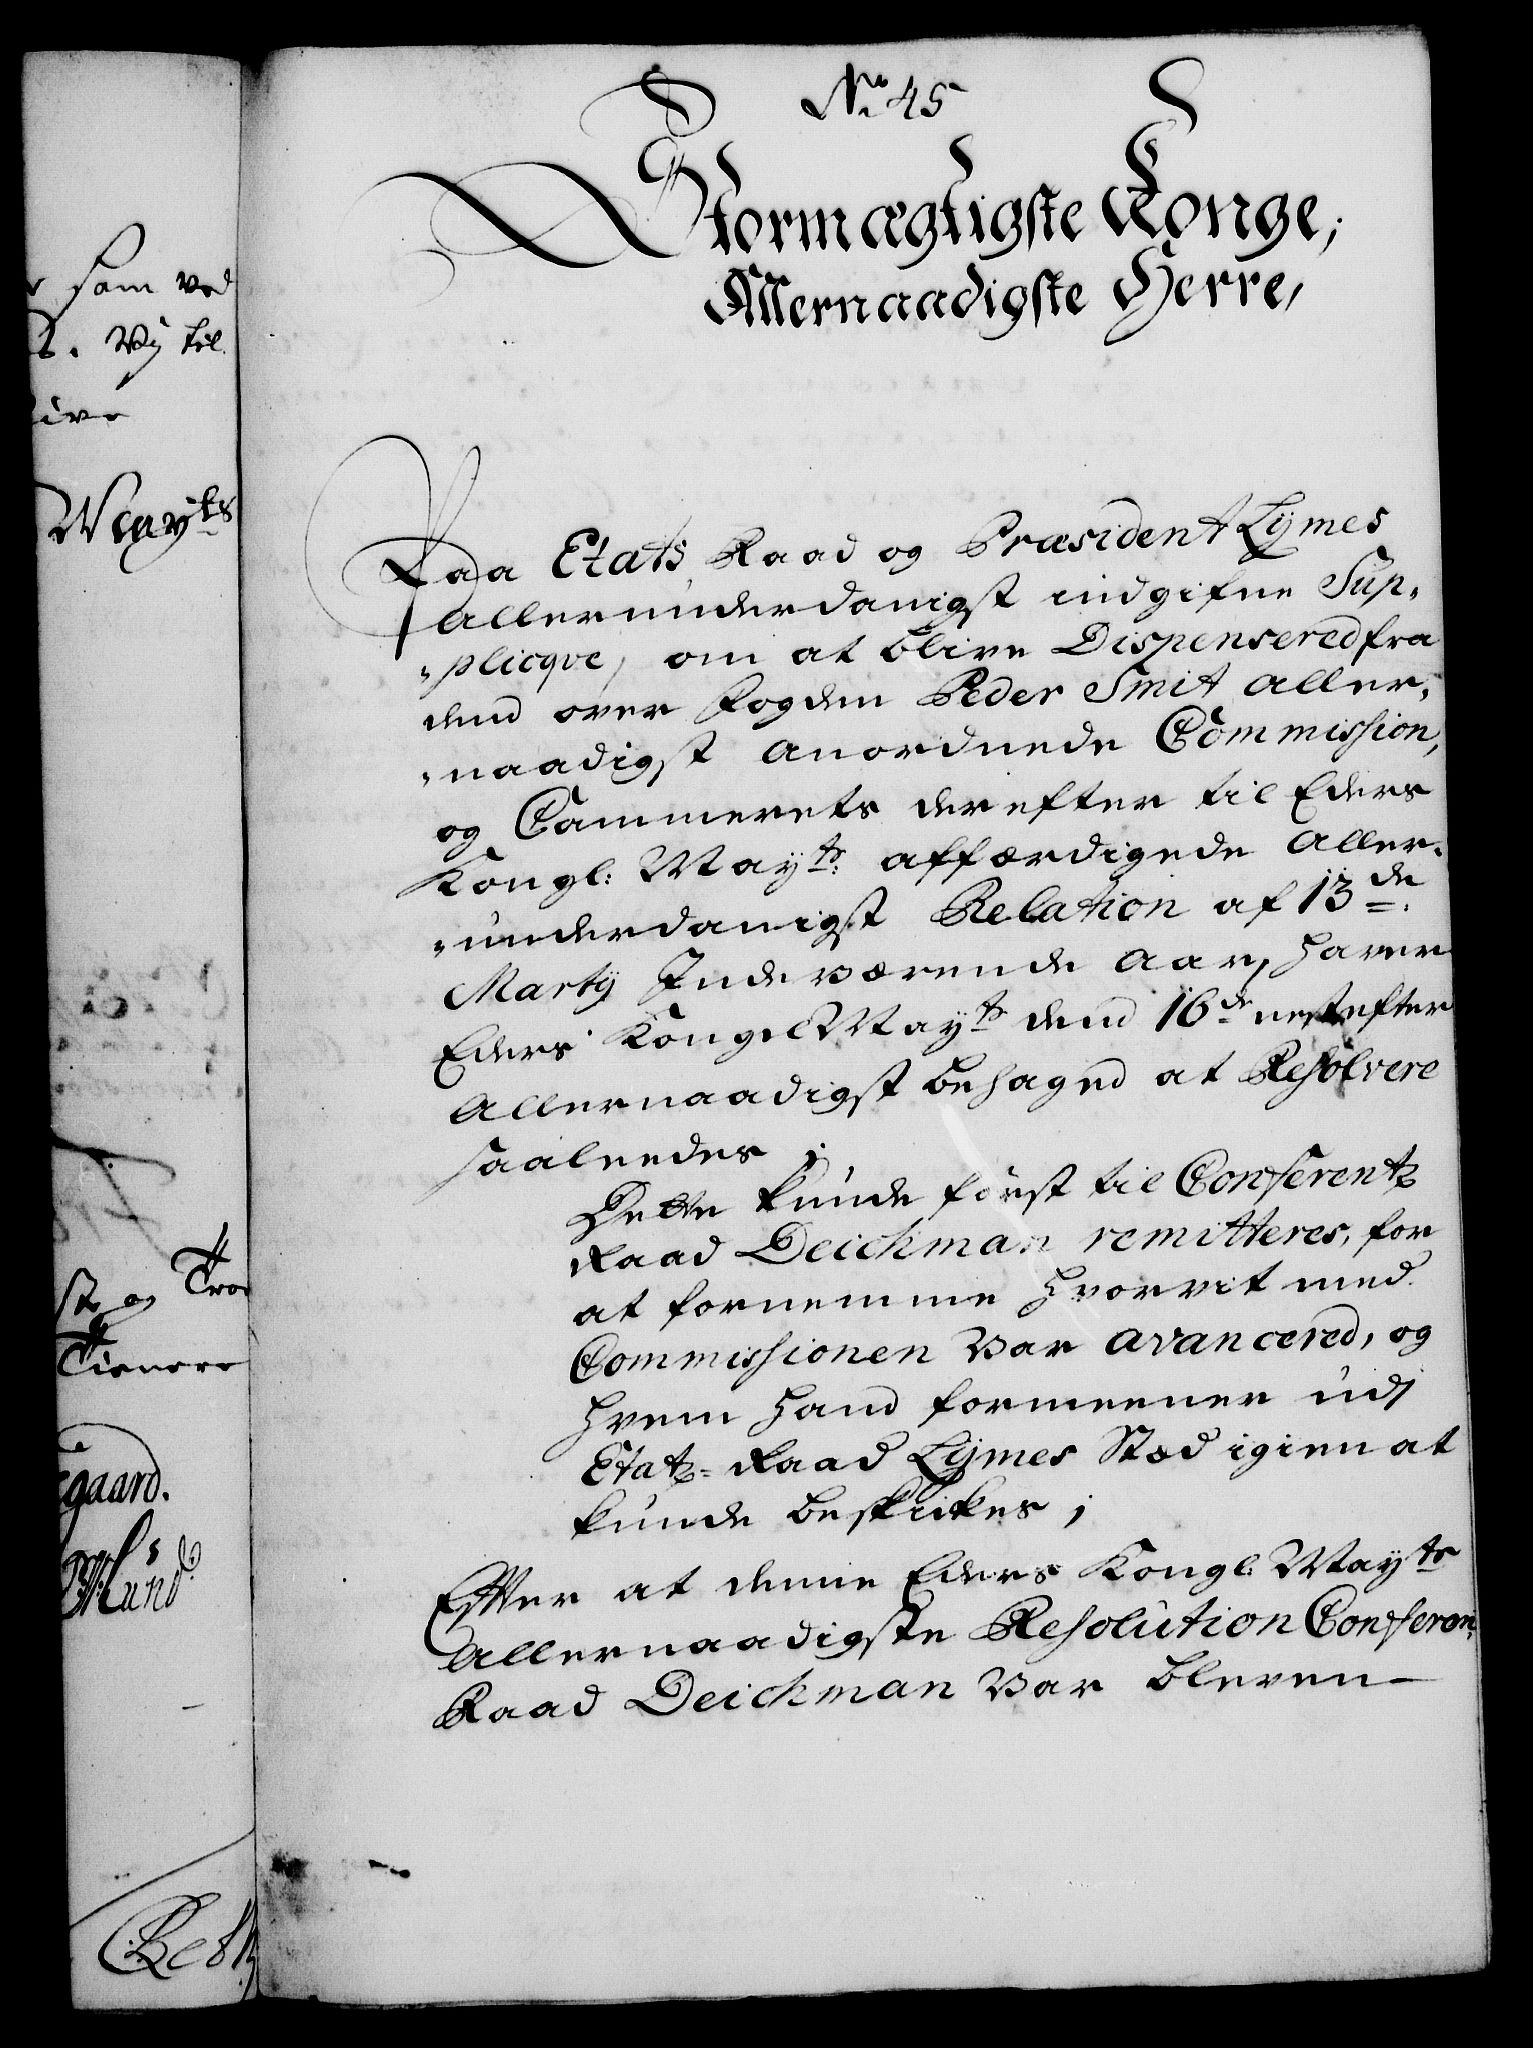 r som ved
. Wij til
ive
Mayts
st og Troe
Tienere
gaard.
Mund
No 45
Stormægtigste Konge,
Allernaadigste Herre,
Paa Etats Raad og Præsident Lymes
allerunderdanigst indgifne Sup„
„plicqve, om at blive Dispensered fra
dend over fogden Peder Smit aller„
„naadigst anordnede Commission,
og Cammerets derefter til Eders
Kongl: Mayts: affærdigede aller„
„underdanigst Relation af 13de
Marty Indeværende aar, haver
Eders Kongel Mayts dend 16de nestefter
allernaadigst behaged at Resolvere
saaleedes ;
Dette kunde først til Conferentz
Raad Deichman remitteres, for
at fornemme hvorvit med
Commissionen var avancered, og
hvem hand formeener udj
Etatz-Raad Lymes Stæd igien at
kunde beskikes ;
Efter at denne Eders Kongl: Mayts
allernaadigste Resolution Conferen„
Raad Deichman var bleven